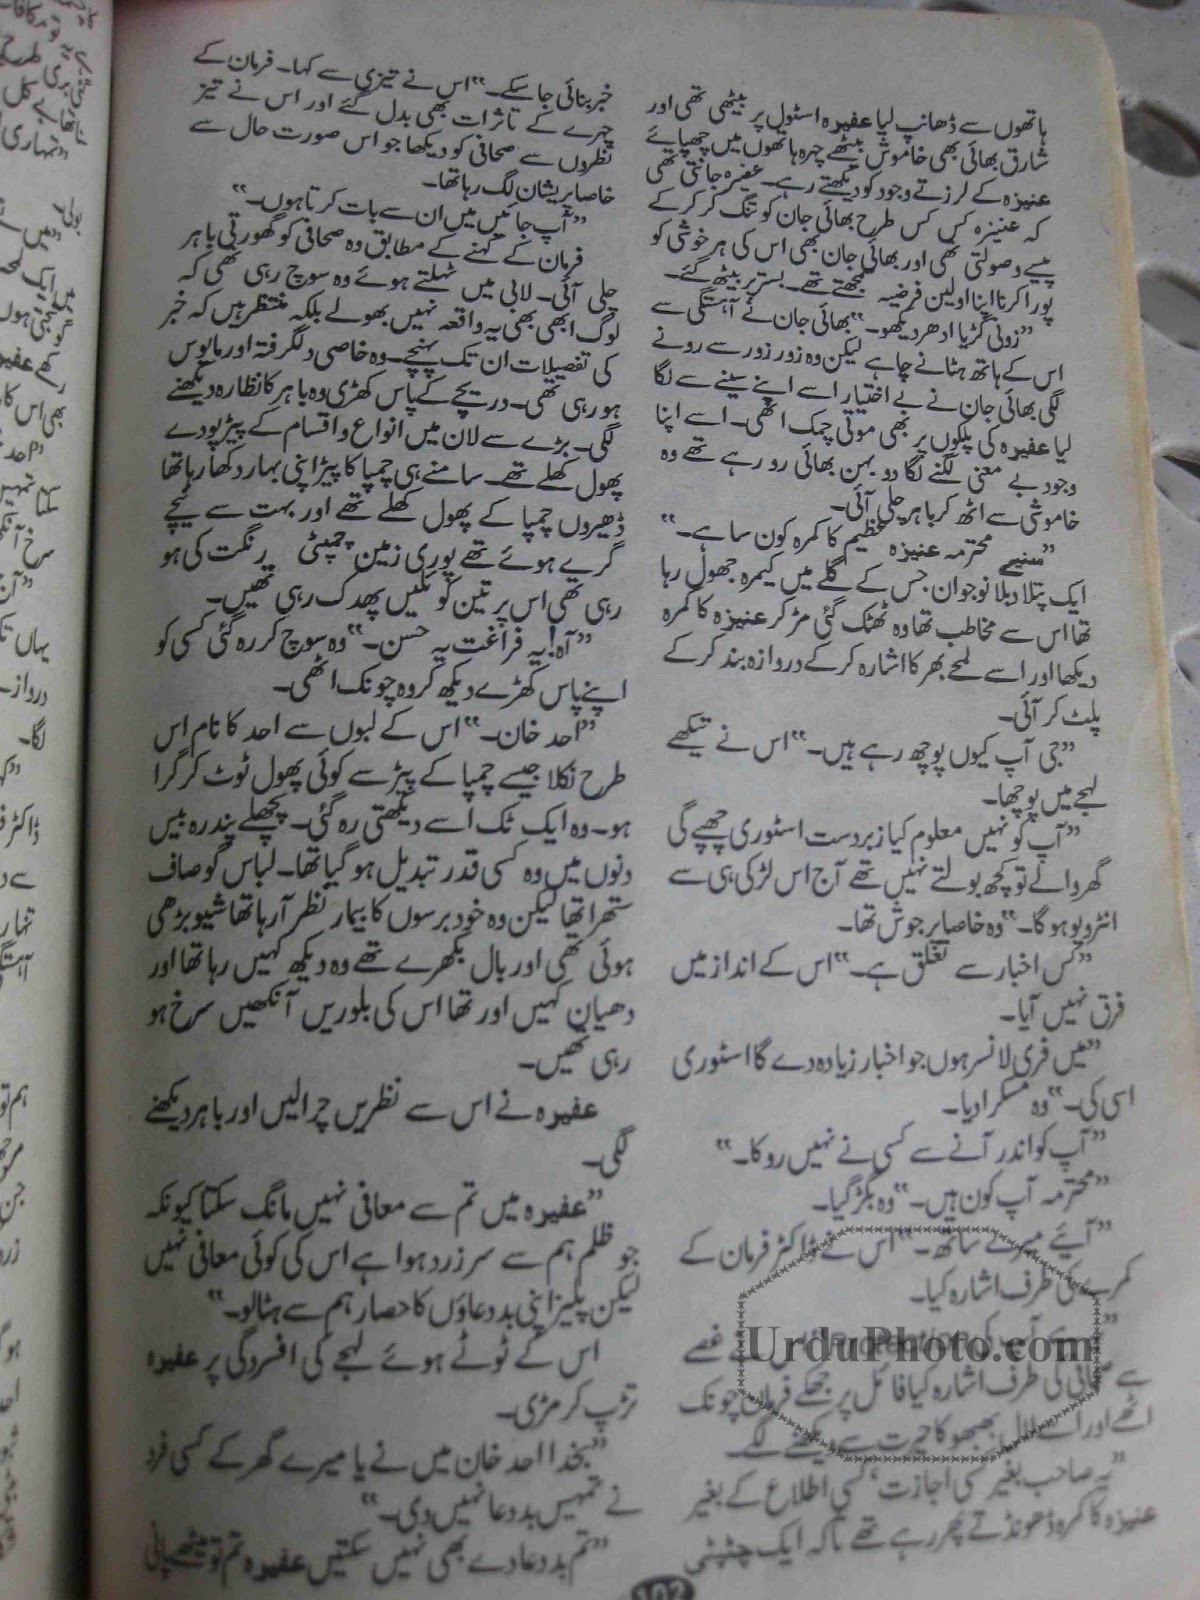 ہاتھوں سے ڈھانپ لیا عفیرہ اسٹول پر بیٹھی تھی اور
شارق بھائی بھی خاموش بیٹھے چہرہ ہاتھوں میں چھپائے
عنیزہ کے لرزتے وجود کو دیکھتے رہے۔ عفیرہ جانتی تھی
کہ عنیزہ کس کس طرح بھائی جان کو تنگ کر کر کے
پیسے وصولتی تھی اور بھائی جان بھی اس کی ہر خوشی کو
پورا کرنا اپنا اولین فرضیہ سمجھتے تھے۔ بستر پر بیٹھ گئے۔
”زوئی گڑیا ادھر دیکھو۔“ بھائی جان نے آہستگی سے
اس کے ہاتھ ہٹانے چاہے لیکن وہ زور زور سے رونے
لگی بھائی جان نے بے اختیار اسے اپنے سینے سے لگا
لیا عفیرہ کی پلکوں پر بھی موتی چمک اٹھی۔ اسے اپنا
وجود بے معنی لگنے لگا دو بہن بھائی رو رہے تھے وہ
خاموشی سے اٹھ کر باہر چلی آئی۔
”سنیے محترمہ عنیزہ عظیم کا کمرہ کون سا ہے۔“
ایک پتلا دبلا نوجوان جس کے گلے میں کیمرہ جھول رہا
تھا اس سے مخاطب تھا وہ ٹھٹک گئی مڑ کر عنیزہ کا کمرہ
دیکھا اور اسے لمحے بھر کا اشارہ کر کے دروازہ بند کر کے
پلٹ کر آئی۔
”جی آپ کیوں پوچھ رہے ہیں۔“ اس نے تیکھے
لہجے میں پوچھا۔
”آپ کو نہیں معلوم کیا زبردست اسٹوری چھپے گی
گھر والے تو کچھ بولتے نہیں تھے آج اس لڑکی ہی سے
انٹرویو ہوگا۔“ وہ خاصا پر جوش تھا۔
”کس اخبار سے تعلق ہے۔“ اس کے انداز میں
فرق نہیں آیا۔
”میں فری لانسر ہوں جو اخبار زیادہ دے گا اسٹوری
اسی کی۔“ وہ مسکرا دیا۔
”آپ کو اندر آنے سے کسی نے نہیں روکا۔“
”محترمہ آپ کون ہیں۔“ وہ بگڑ گیا۔
”آیئے میرے ساتھ۔“ اس نے ڈاکٹر فرمان کے
کمرے کی طرف اشارہ کیا۔
آپ کی Protection غصے
سے صحافی کی طرف اشارہ کیا فائل پر جھکے فرمان چونک
اٹھے اور اسے لال بھبھوکا حیرت سے دیکھنے لگے۔
”یہ صاحب بغیر کسی اجازت، کسی اطلاع کے بغیر
عنیزہ کا کمرہ ڈھونڈتے پھر رہے تھے تاکہ ایک چٹپٹی
خبر بنائی جا سکے۔“ اس نے تیزی سے کہا۔ فرمان کے
چہرے کے تاثرات بھی بدل گئے اور اس نے تیز
نظروں سے صحافی کو دیکھا جو اس صورت حال سے
خاصا پریشان لگ رہا تھا۔
”آپ جائیں میں ان سے بات کرتا ہوں۔“
فرمان کے کہنے کے مطابق وہ صحافی کو گھورتی باہر
چلی آئی۔ لابی میں ٹہلتے ہوئے وہ سوچ رہی تھی کہ
لوگ ابھی بھی یہ واقعہ نہیں بھولے بلکہ منتظر ہیں کہ خبر
کی تفصیلات ان تک پہنچے۔ وہ خاصی دلگرفتہ اور مایوس
ہو رہی تھی۔ دریچے کے پاس کھڑی وہ باہر کا نظارہ دیکھنے
لگی۔ بڑے سے لان میں انواع و اقسام کے پیڑ پودے
پھول کھلے تھے۔ سامنے ہی چمپا کا پیڑ اپنی بہار دکھا رہا تھا
ڈھیروں چمپا کے پھول کھلے تھے اور بہت سے نیچے
گرے ہوئے تھے پوری زمین چمپئی رنگت کی ہو
رہی تھی اس پر تین کوئلیں پھدک رہی تھیں۔
”آہ! یہ فراغت یہ حسن۔“ وہ سوچ کر رہ گئی کسی کو
اپنے پاس کھڑے دیکھ کر وہ چونک اٹھی۔
”احد خان۔“ اس کے لبوں سے احد کا نام اس
طرح نکلا جیسے چمپا کے پیڑ سے کوئی پھول ٹوٹ کر گرا
ہو۔ وہ ایک ٹک اسے دیکھتی رہ گئی۔ پچھلے پندرہ بیس
دنوں میں وہ کسی قدر تبدیل ہو گیا تھا۔ لباس گو صاف
ستھرا تھا لیکن وہ خود برسوں کا بیمار نظر آ رہا تھا شیو بڑھی
ہوئی تھی اور بال بکھرے تھے وہ دیکھ کہیں رہا تھا اور
دھیان کہیں اور تھا اس کی بلوریں آنکھیں سرخ ہو
رہی تھیں۔
عفیرہ نے اس سے نظریں چرا لیں اور باہر دیکھنے
لگی۔
”عفیرہ میں تم سے معافی نہیں مانگ سکتا کیونکہ
جو ظلم ہم سے سرزرد ہوا ہے اس کی کوئی معافی نہیں
لیکن پلیز اپنی بددعاؤں کا حصار ہم سے ہٹا لو۔“
اس کے ٹوٹے ہوئے لہجے کی افسردگی پر عفیرہ
تڑپ کر مڑی۔
”بخدا احد خان میں نے یا میرے گھر کے کسی فرد
نے تمہیں بددعا نہیں دی۔“
”تم بددعا دے بھی نہیں سکتیں عفیرہ تم تو میٹھے پانی
102
UrduPhoto.com